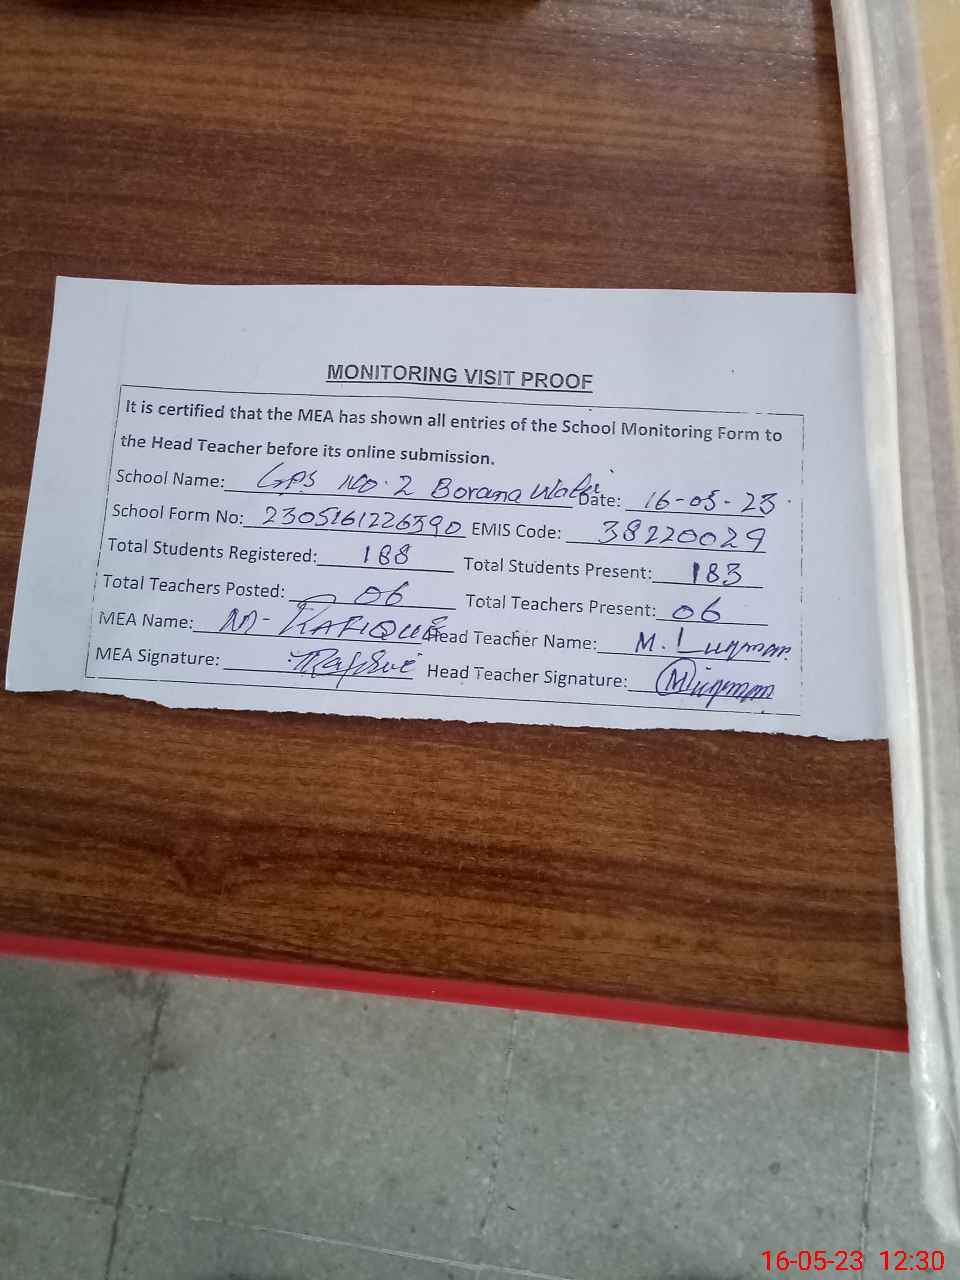 MONITORING VISIT PROOF
It is certified that the MEA has shown all entries of the School Monitoring Form to
the Head Teacher before its online submission.
School Name: GPS NO. 2 Borana Date: 16-05-23
School Form No: 2305161226590 EMIS Code: 38220029
Total Students Registered: 188 Total Students Present: 183
Total Teachers Posted: 06 Total Teachers Present: 06
MEA Name: M-RAFIQUE Head Teacher Name: M. Luqman
MEA Signature: Rafique Head Teacher Signature: M Luqman
16-05-23 12:30